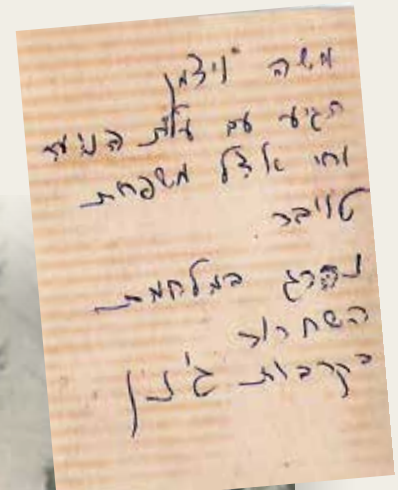 משה ויצמן
הגיע עם עלית הנוער
וחי אצל משפחת
טויבר
נהרג במלחמת
השחרור
בקרבות ג'נין